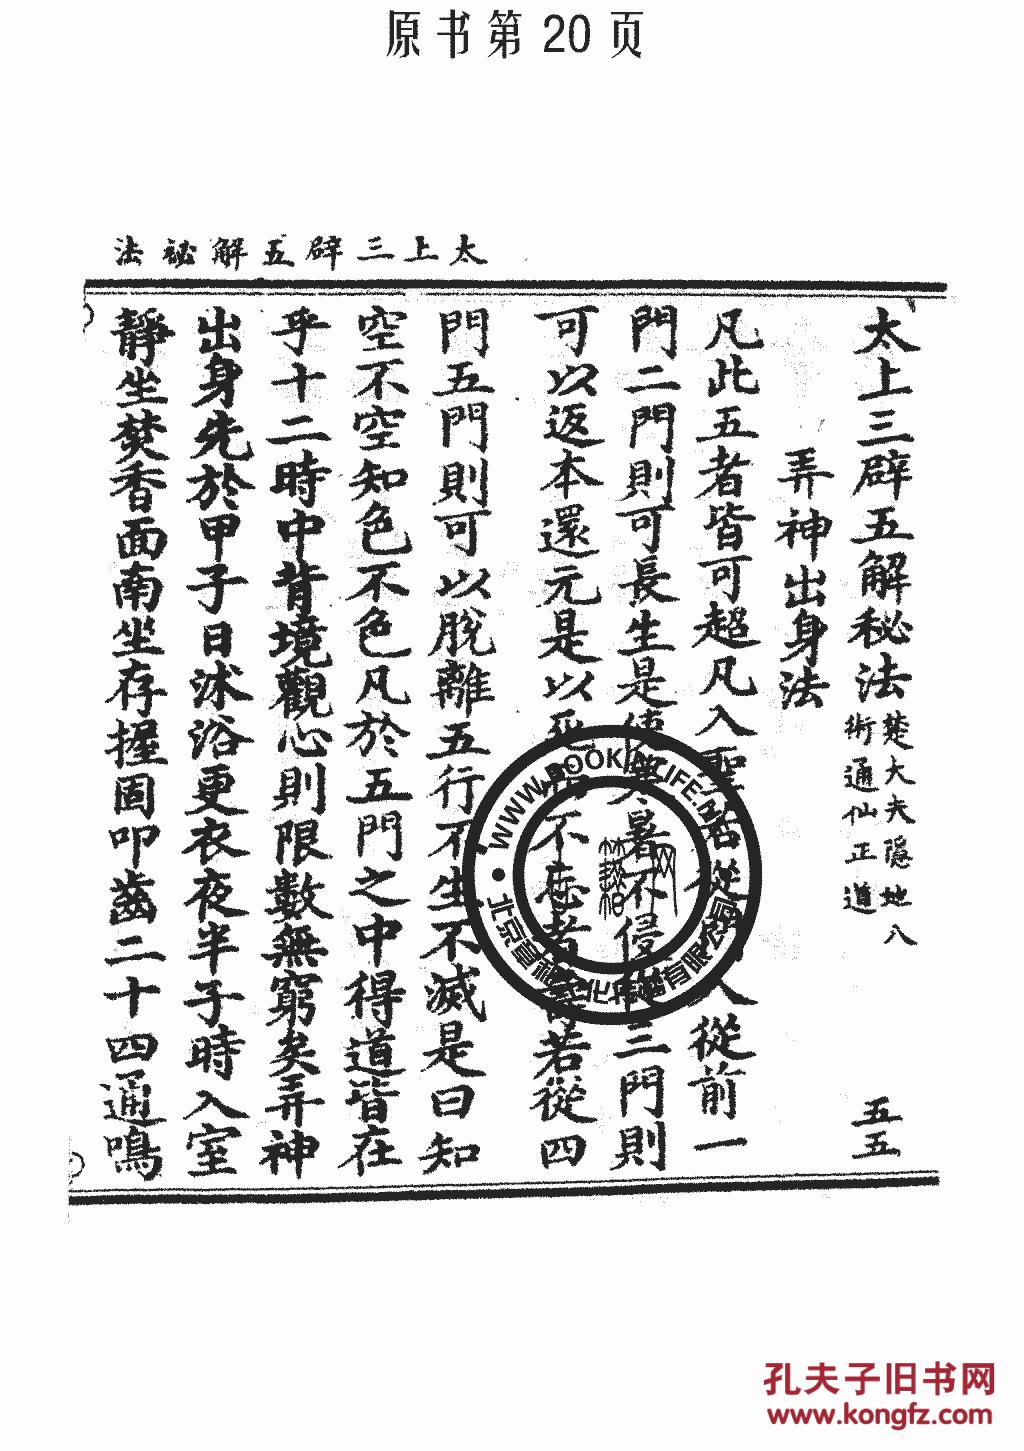 原书第20页
太上三辟五解祕法
太上三辟五解秘法
楚大夫隱地八
術通仙正道
五五
弄神出身法
凡此五者皆可超凡入聖若從
入從前一
門二門則可長生是使
暑不侵
三門則
可以返本還元是以
不
者
若從四
門五門則可以脫離五行不生不滅是曰知
空不空知色不色凡於五門之中得道皆在
乎十二時中背境觀心則限數無窮矣弄神
出身先於甲子日沐浴更衣夜半子時入室
靜坐焚香面南坐存握固叩齒二十四通鳴
WWW.BOOK
LIFE.
北京
有限公司
孔夫子旧书网
www.kongfz.com